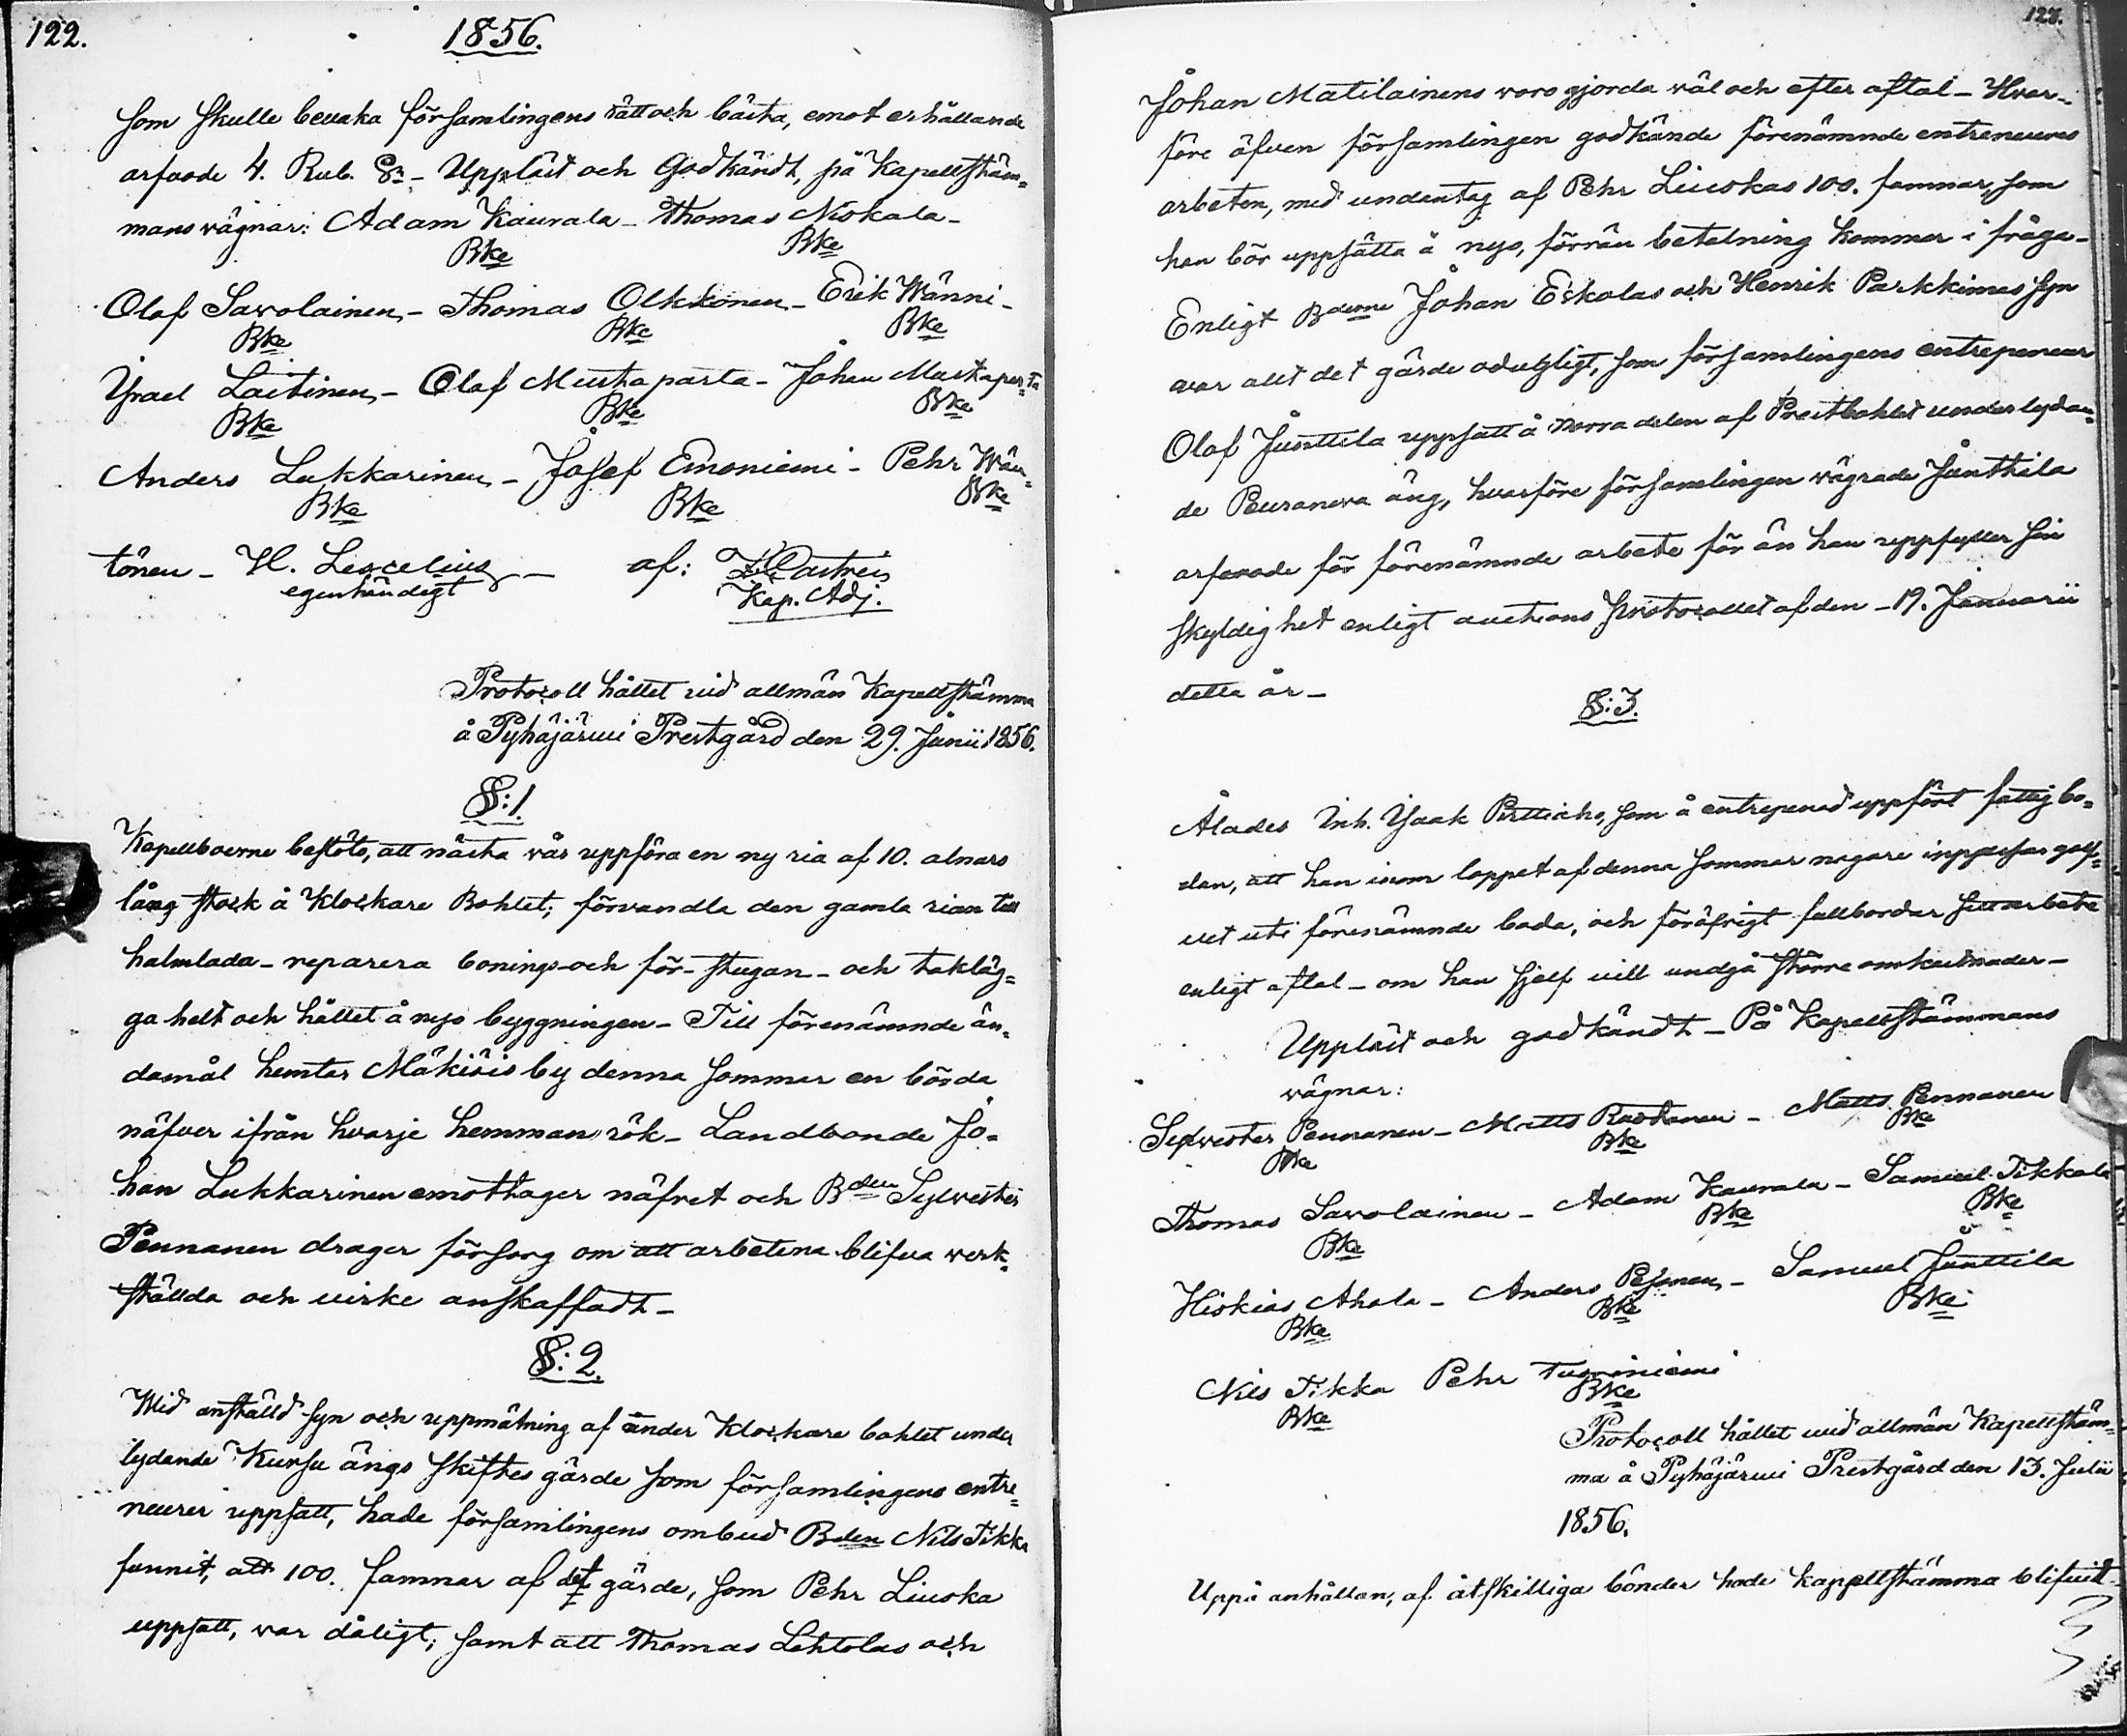 122.
1856.
som skulle bevaka församlingens rätt och bästa, emot erhållande
arfvode 4. Rub. Sr – Uppläst och Godkändt, på Kapellstäm=
mans vägnar: Adam Kaurala – Thomas Niskala –
Bke Bke
Olof Savolainen – Thomas Olkkonen – Erik Wänni –
Bke Bke Bke
Ysrael Laitinen – Olof Mustaparta – Johan Mustaparta
Bke Bke Bke
Anders Lukkarinen – Josef Emoniemi – Pehr Wän=
Bke Bke Bke
tönen – H. Lescelius – af: Castrén
egenhändigt Kap. Adj.
Protocoll hållet vid allmän Kapellstämma
å Pyhäjärwi Prestgård den 29. Junii 1856.
§: 1.
Kapellboerne beslöto, att nästa vår uppföra en ny ria af 10. alnars
lång stock å Klockare Bohlet; förvandla den gamla rian till
halmlada – reparera bonings- och för-stugan – och takläg=
ga helt och hållet å nyo byggningen – Till förenämnde än=
damål hemtar Mäkiöis by denna sommar en börda
näfver ifrån hvarje hemmans rök – Landbonde Jo=
han Lukkarinen emottager näfret och Bden Sylvester
Pennanen drager försorg om att arbetena blifva verk=
ställda och virke anskaffadt –
§: 2.
Wid anställd syn och uppmätning af under Klockare bohlet under
lydande Kursu ängs skiftes gärde som församlingens entre=
neurer uppsatt, hade församlingens ombud Bden Nils Tikka
funnit, att 100. famnar af det gärde, som Pehr Liuska
uppsatt, var dåligt; samt att Thomas Lehtolas och
123.
Johan Matilainens voro gjorda väl och efter aftal – Hvar=
före äfven församlingen godkände förenämnde entreneures
arbeten, med undantag af Pehr Liuskas 100. famnar, som
han bör uppsätta å nyo, förrän betalning kommer i fråga –
Enligt Bderne Johan Eskolas och Henrik Parkkimas syn
var allt det gärde odugligt, som församlingens entrepeneur
Olof Junttila uppsatt å norra delen af Prestbohlet underlydan=
de Peuraneva äng, hvarföre församlingen vägrade Junttila
arfvode för förenämnde arbete för än han uppfyller sin
skyldighet enligt auctions protocollet af den – 19. Januarii
detta år –
§: 3.
Ålades Inh. Ysaak Pirttiaho, som å entrepenad uppfört fattigbo=
dan, att han inom loppet af denna sommar nogare inpassar golf=
vet uti förenämnde boda, och föröfrigt fullbordar sitt arbete
enligt aftal – om han sjelf vill undgå större omkostnader –
Uppläst och godkändt – På Kapellstämmans
vägnar:
Sylvester Pennanen – Matts Rautanen – Matts Pennanen
Bke Bke Bke
Thomas Savolainen – Adam Kaurala – Samuel Tikkala
Bke Bke Bke
Hiskias Ahola – Anders Pesonen – Samuel Junttila
Bke Bke Bke
Nils Tikka Pehr Tuoriniemi
Bke Bke
Protocoll hållet vid allmän Kapellstäm=
ma å Pyhäjärwi Prestgård den 13. Julii
1856.
Uppå anhållan, af åtskilliga bönder hade kapellstämma blifvit